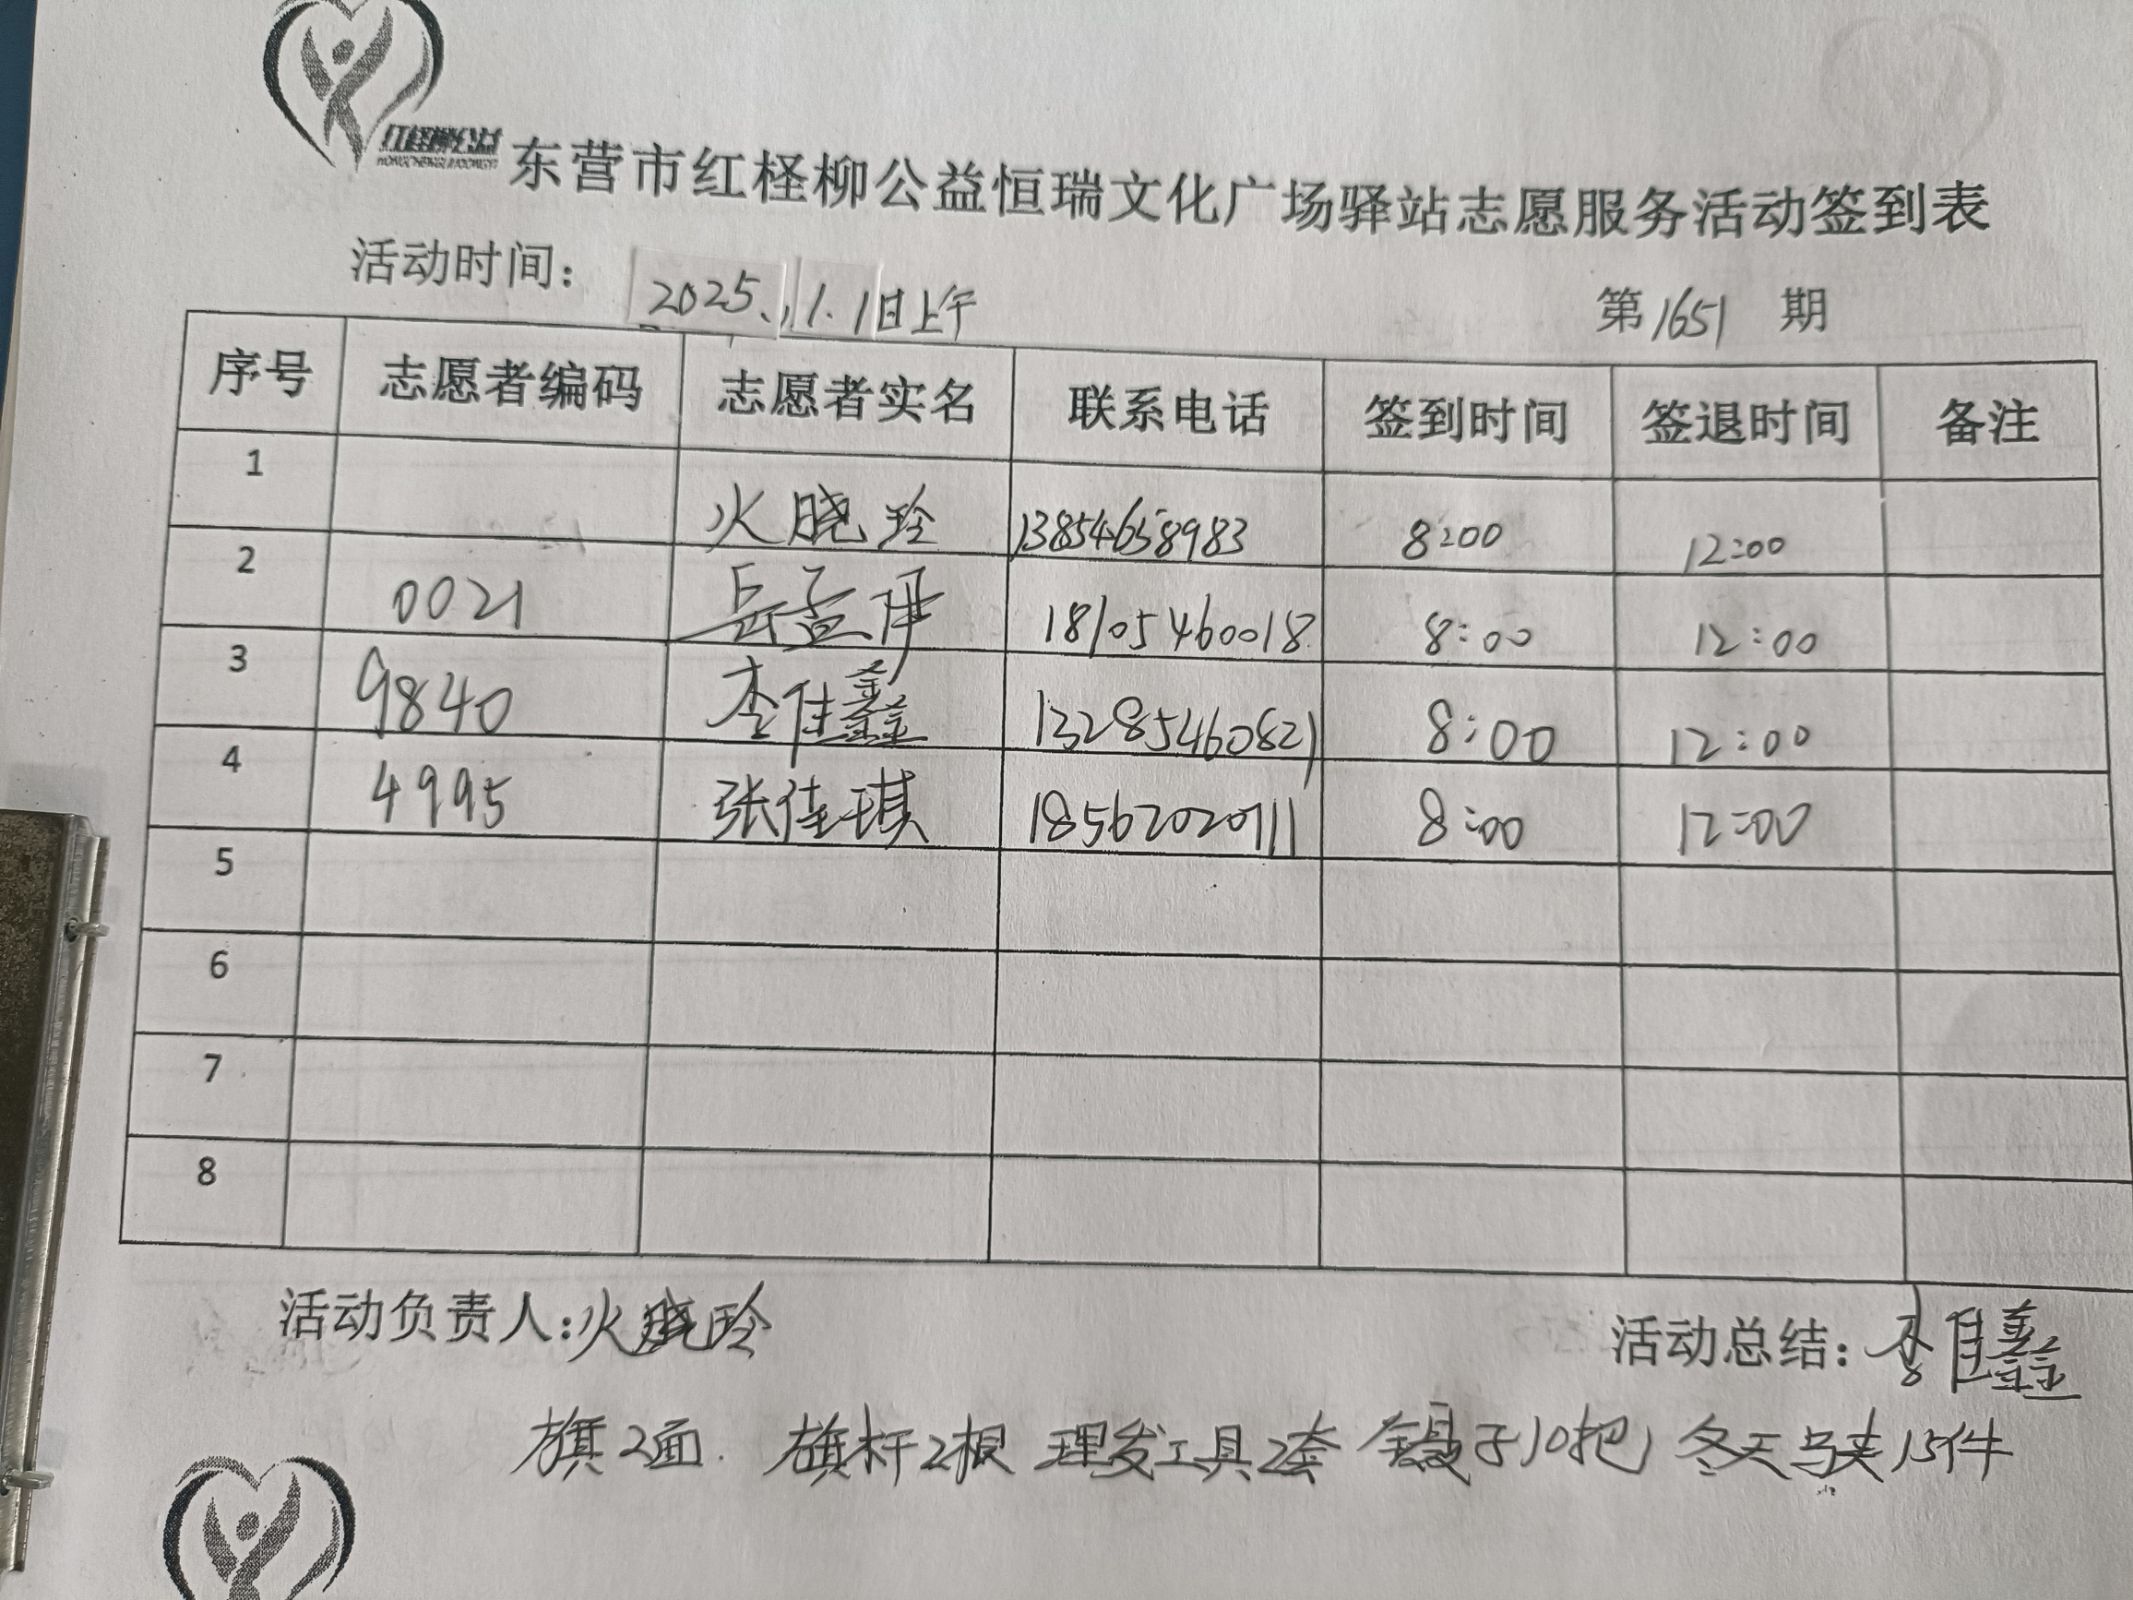 红柽柳公益
HONGCHENGLIUGONGYI
东营市红柽柳公益恒瑞文化广场驿站志愿服务活动签到表
活动时间： 2025.11.1日上午 第1651期
序号 志愿者编码 志愿者实名 联系电话 签到时间 签退时间 备注
1 火晓玲 13854658983 8:00 12:00
2 0021 岳孟伊 18105460018 8:00 12:00
3 9840 李佳鑫 13285460821 8:00 12:00
4 4995 张佳琪 18562020711 8:00 12:00
5
6
7
8
活动负责人：火晓玲 活动总结：李佳鑫
旗2面. 旗杆2根 理发工具2套 镊子10把 冬天马夹15件